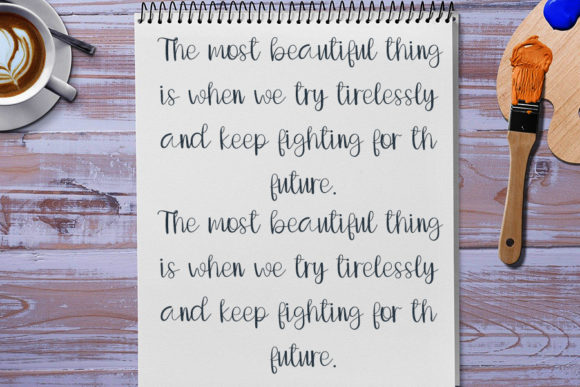 The most beautiful thing
is when we try tirelessly
and keep fighting for th
future.
The most beautiful thing
is when we try tirelessly
and keep fighting for th
future.